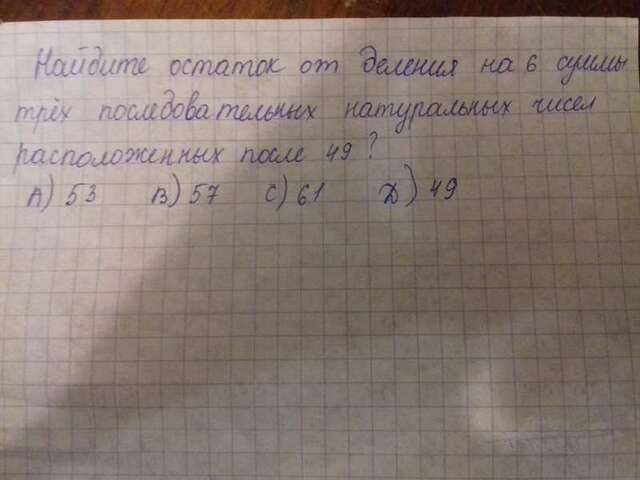 Найдите остаток от деления на 6 суммы
трёх последовательных натуральных чисел
расположенных после 49?
А) 53 В) 57 С) 61 Д) 49